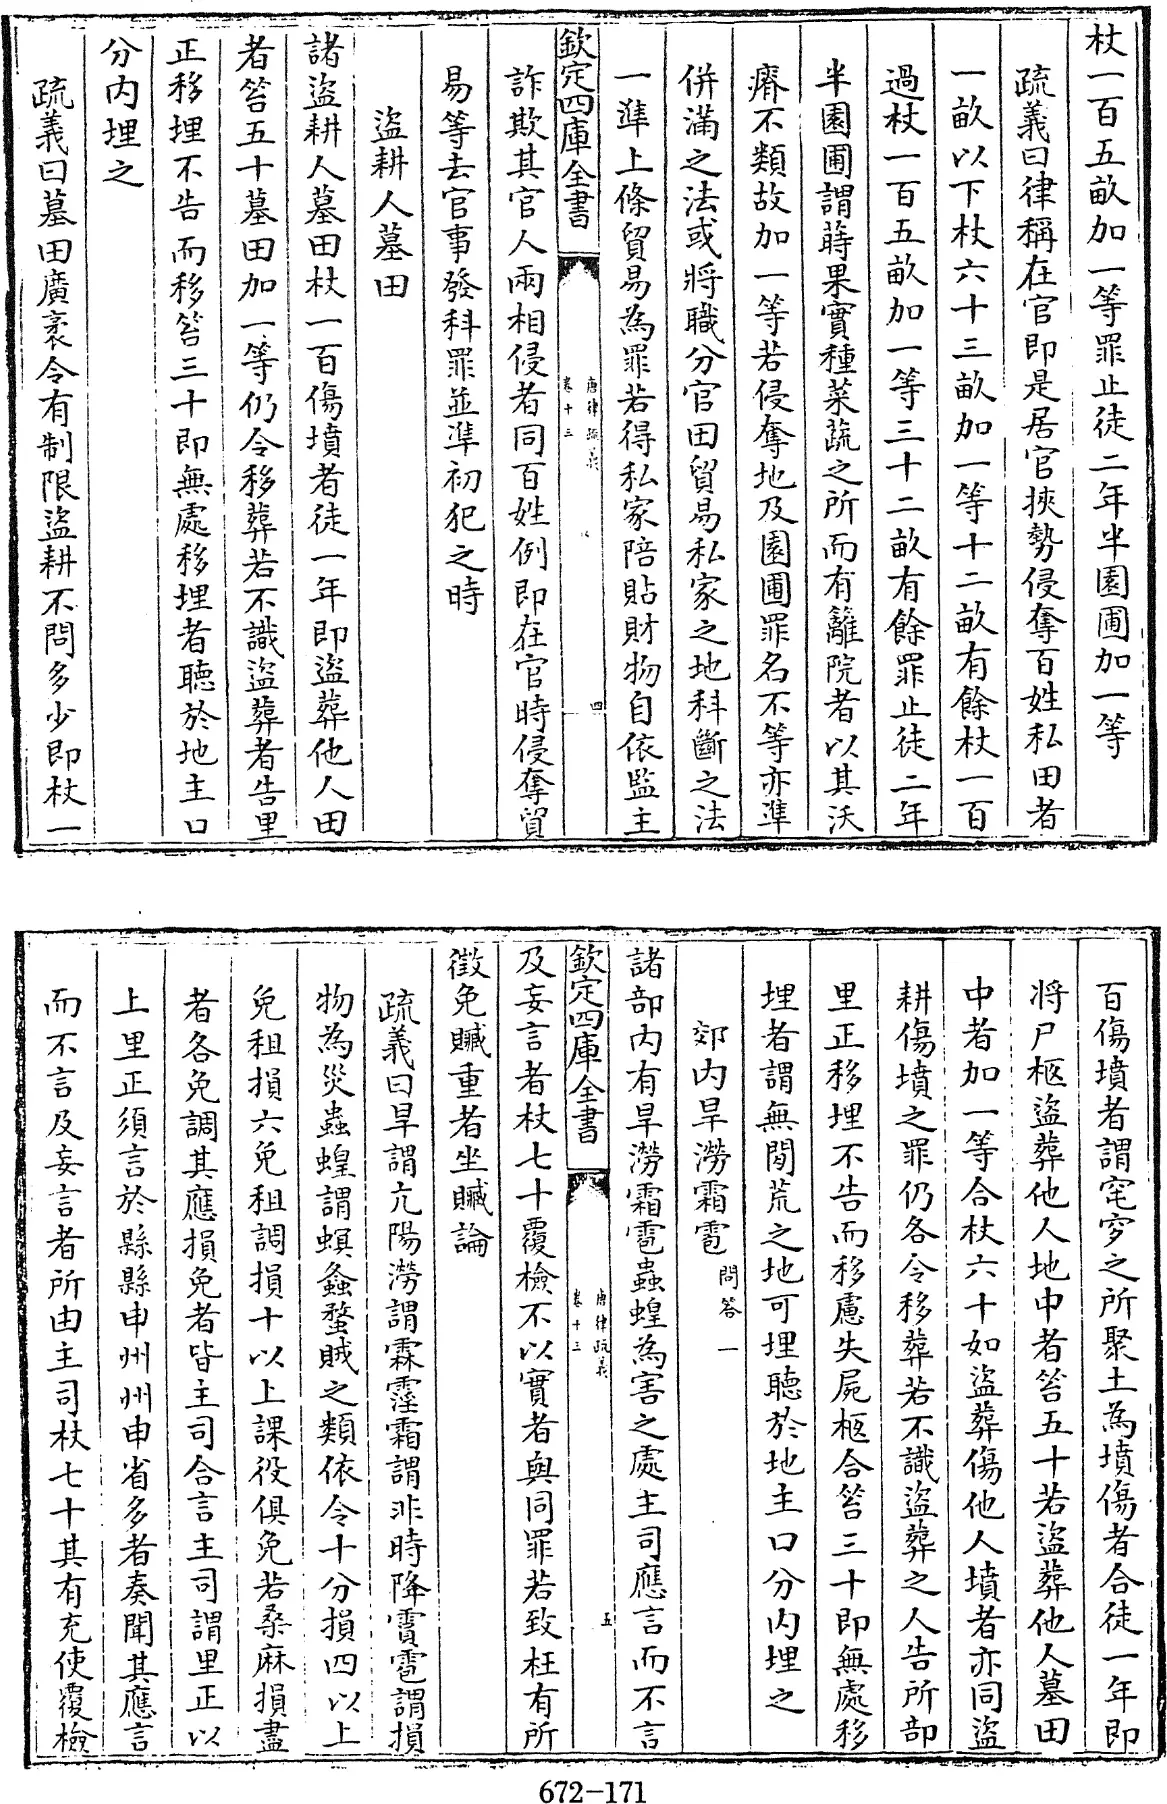 杖一百五畝加一等罪止徒二年半園圃加一等
疏義曰律稱在官即是居官挾勢侵奪百姓私田者
一畝以下杖六十三畝加一等十二畝有餘杖一百
過杖一百五畝加一等三十二畝有餘罪止徒二年
半園圃謂蒔果實種菜蔬之所而有籬院者以其沃
瘠不類故加一等若侵奪地及園圃罪名不等亦準
併滿之法或將職分官田貿易私家之地科斷之法
一準上條貿易為罪若得私家陪貼財物自依監主
欽定四庫全書
唐律疏義
卷十三
四
詐欺其官人兩相侵者同百姓例即在官時侵奪貿
易等去官事發科罪並準初犯之時
盜耕人墓田
諸盜耕人墓田杖一百傷墳者徒一年即盜葬他人田
者笞五十墓田加一等仍令移葬若不識盜葬者告里
正移埋不告而移笞三十即無處移埋者聽於地主口
分內埋之
疏義曰墓田廣袤令有制限盜耕不問多少即杖一
百傷墳者謂窀穸之所聚土為墳傷者合徒一年即
將尸柩盜葬他人地中者笞五十若盜葬他人墓田
中者加一等合杖六十如盜葬傷他人墳者亦同盜
耕傷墳之罪仍各令移葬若不識盜葬之人告所部
里正移埋不告而移慮失屍柩合笞三十即無處移
埋者謂無閒荒之地可埋聽於地主口分內埋之
郊內旱澇霜雹問答一
諸部內有旱澇霜雹蟲蝗為害之處主司應言而不言
欽定四庫全書
唐律疏義
卷十三
五
及妄言者杖七十覆檢不以實者與同罪若致枉有所
徵免贓重者坐贓論
疏義曰旱謂亢陽澇謂霖霪霜謂非時降霣雹謂損
物為災蟲蝗謂螟螽蝥賊之類依令十分損四以上
免租損六免租調損十以上課役俱免若桑麻損盡
者各免調其應損免者皆主司合言主司謂里正以
上里正須言於縣縣申州州申省多者奏聞其應言
而不言及妄言者所由主司杖七十其有充使覆檢
672-171